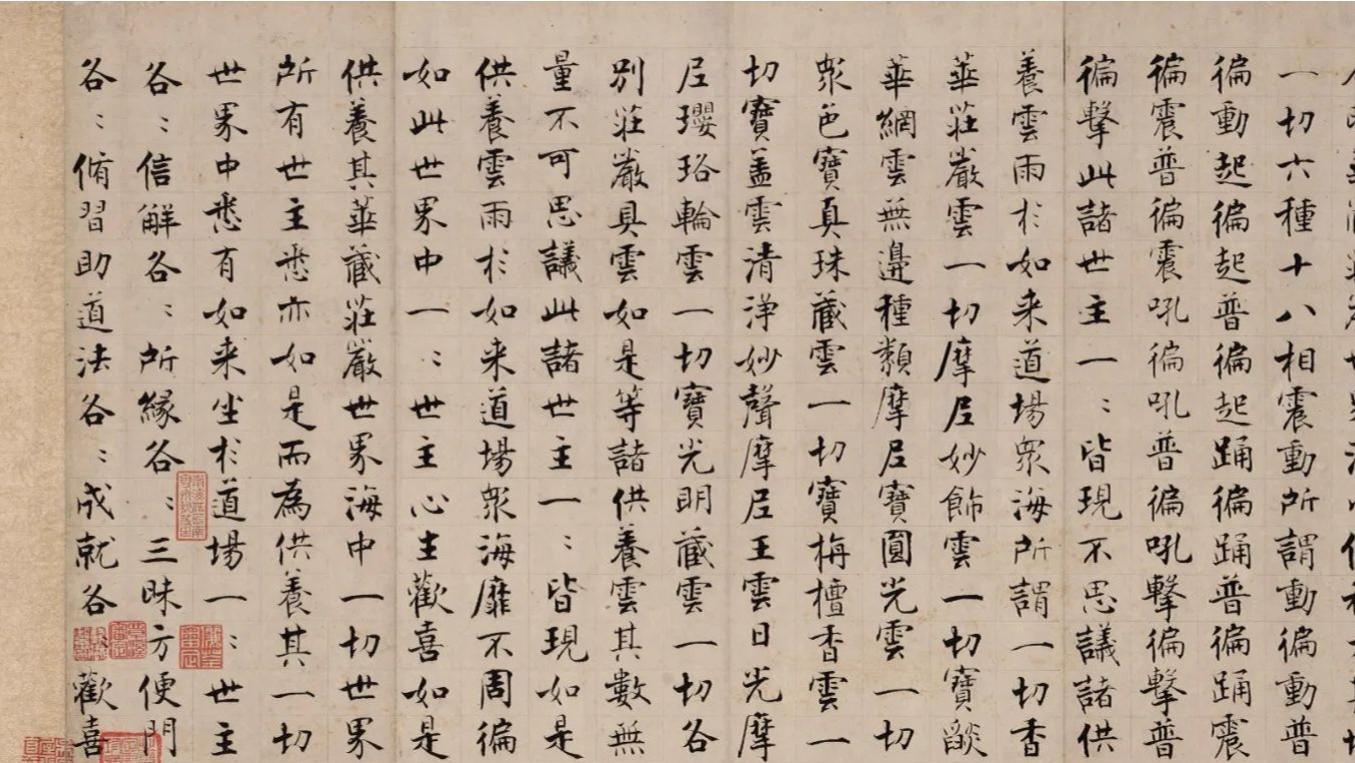 一切六種十八相震動所謂動徧動普
徧動起徧起普徧起踊徧踊普徧踊震
徧震普徧震吼徧吼普徧吼擊徧擊普
徧擊此諸世主一〻皆現不思議諸供
養雲雨於如来道場衆海所謂一切香
華莊嚴雲一切摩尼妙飾雲一切寶燄
華網雲無邊種類摩尼寶圓光雲一切
衆色寶真珠藏雲一切寶栴檀香雲一
切寶盖雲清淨妙聲摩尼王雲日光摩
尼瓔珞輪雲一切寶光明藏雲一切各
别莊嚴具雲如是等諸供養雲其數無
量不可思議此諸世主一〻皆現如是
供養雲雨於如来道場衆海靡不周徧
如此世界中一〻世主心生歡喜如是
供養其華藏莊嚴世界海中一切世界
所有世主悉亦如是而為供養其一切
世界中悉有如来坐於道場一〻世主
各〻信解各〻所緣各〻三昧方便門
各〻脩習助道法各〻成就各〻歡喜